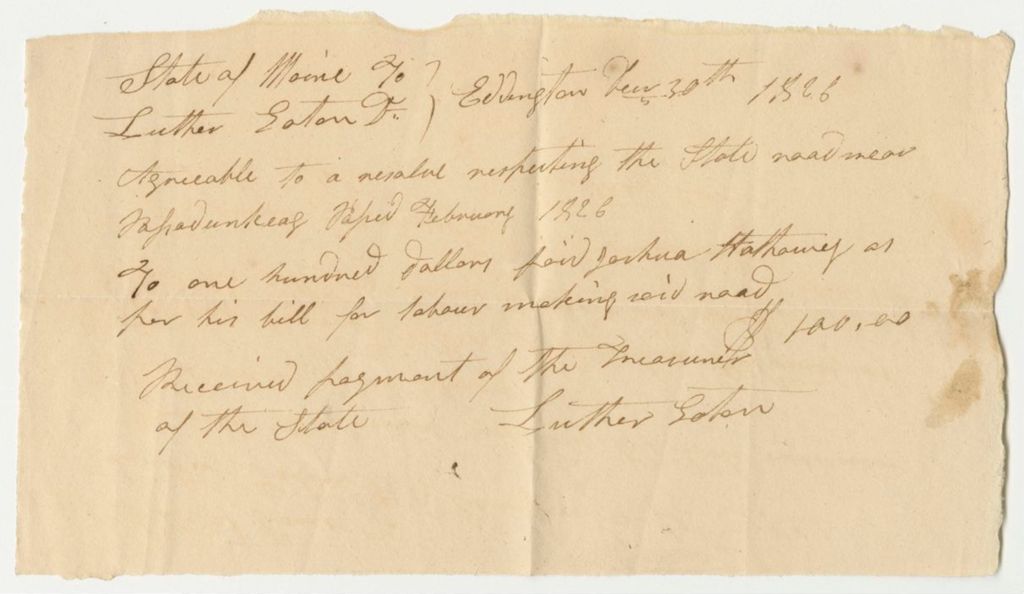 State of Maine To
Luther Eaton Dr. } Eddington 30th 1826
Agreeable to a resolve respecting the State road near
Passadunkeag Passed February 1826
To one hundred dollars paid Joshua Hathaway as
per his bill for labour making said road
$ 100.00
Received payment of the Treasurer
of the State Luther Eaton